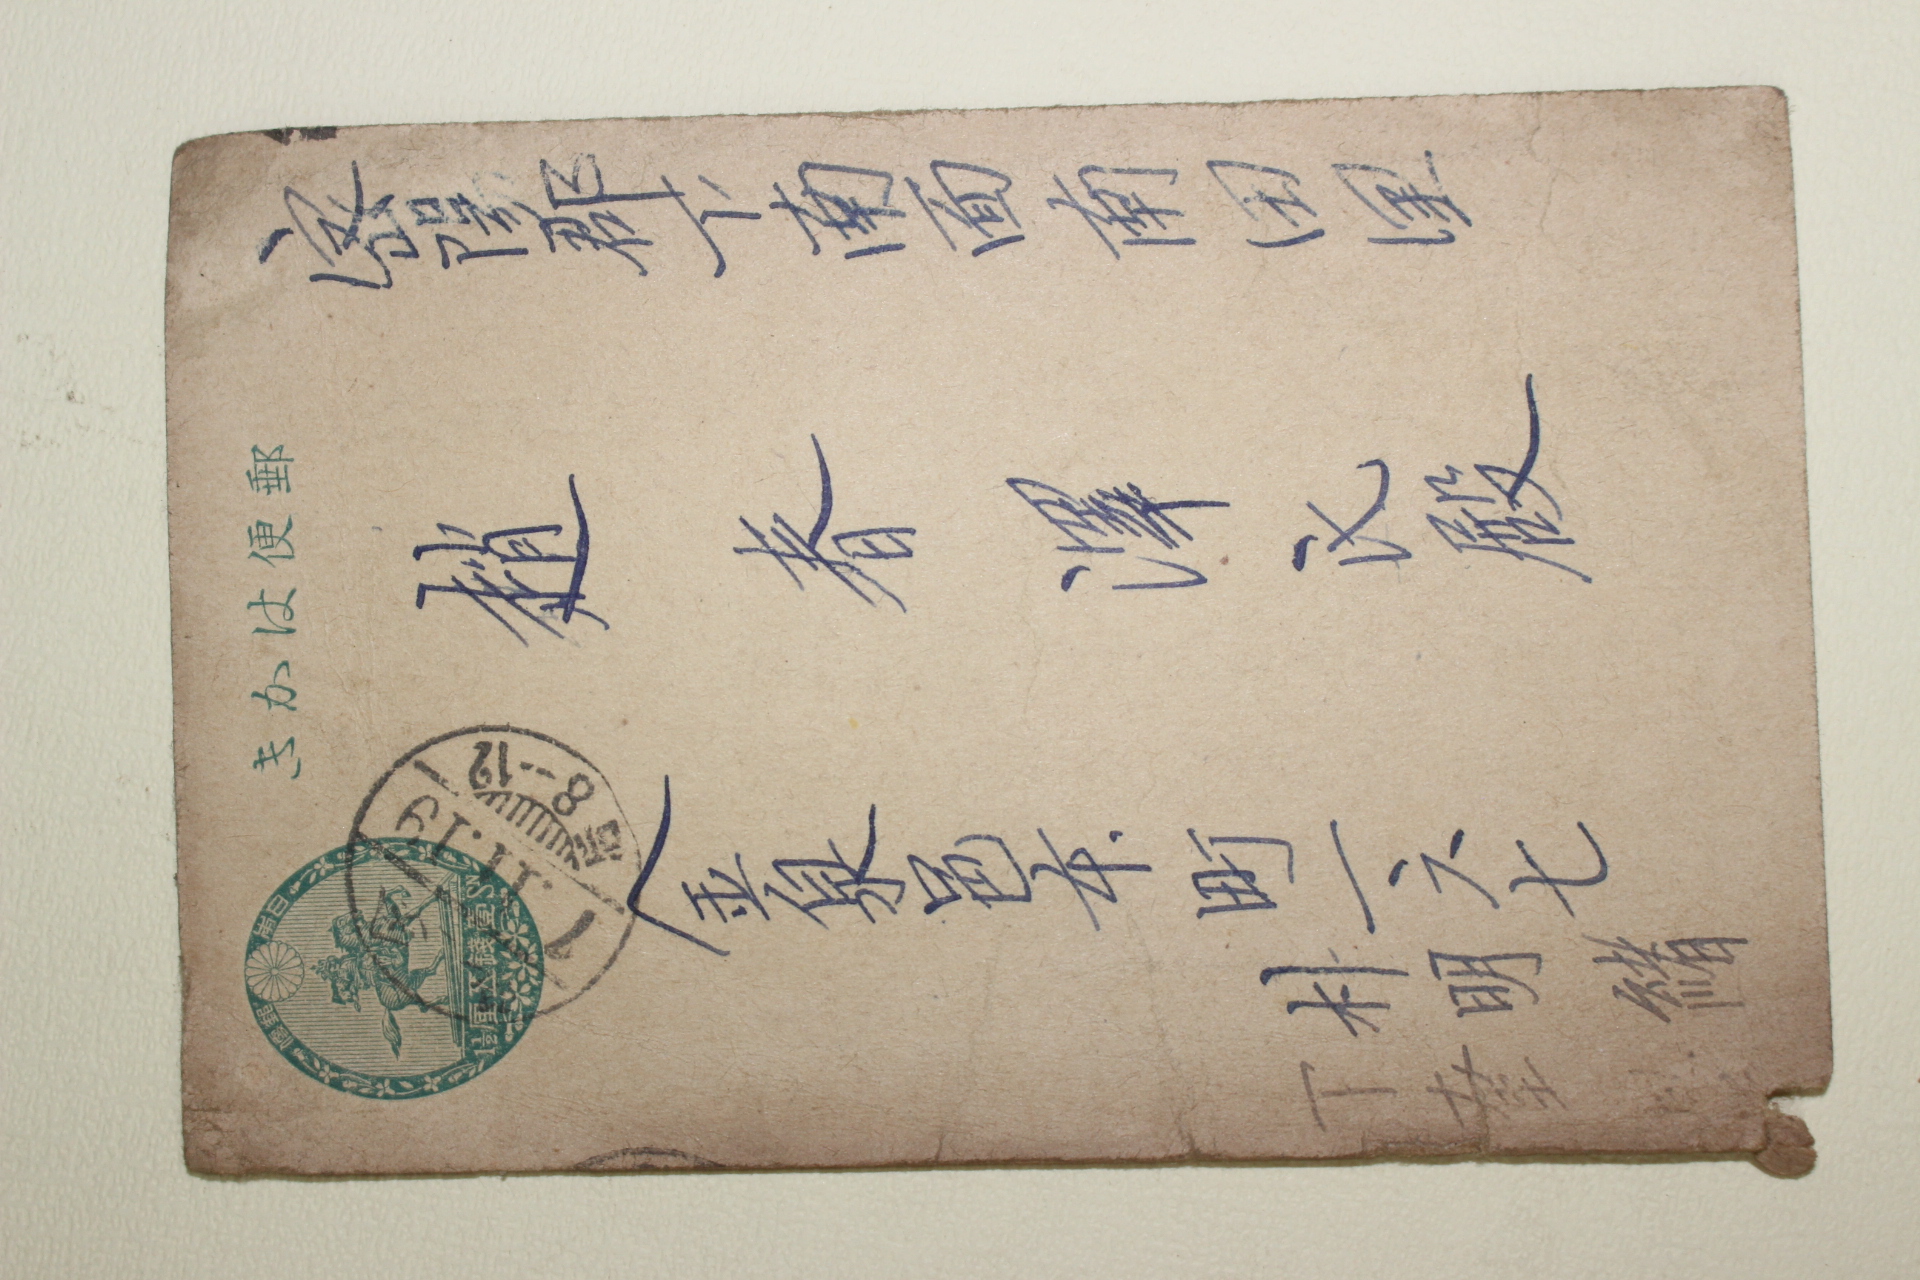 郵便はかき
日本郵便
1½壹錢五厘Sɴ
7.11.19
8-12
密陽郡下南面南田里
趙春澤氏殿
金泉邑本町一六七
朴明緒